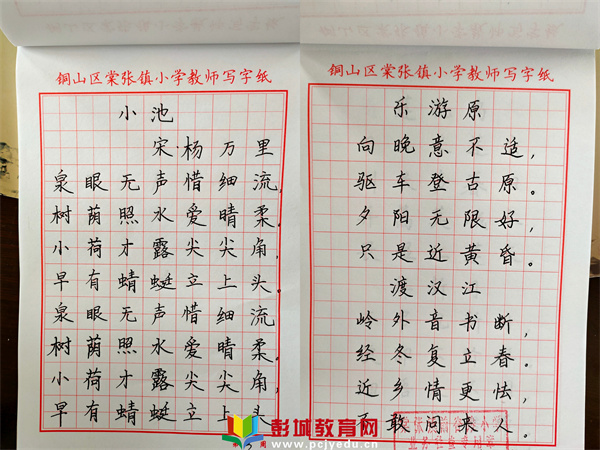 铜山区棠张镇小学教师写字纸
小池
宋·杨万里
泉眼无声惜细流,
树荫照水爱晴柔。
小荷才露尖尖角,
早有蜻蜓立上头。
泉眼无声惜细流
树荫照水爱晴柔。
小荷才露尖尖角,
早有蜻蜓立上头
铜山区棠张镇小学教师写字纸
乐游原
向晚意不适,
驱车登古原。
夕阳无限好,
只是近黄昏。
渡汉江
岭外音书断,
经冬复立春。
近乡情更怯,
敢问来人。
彭城教育网
www.pcjyedu.cn